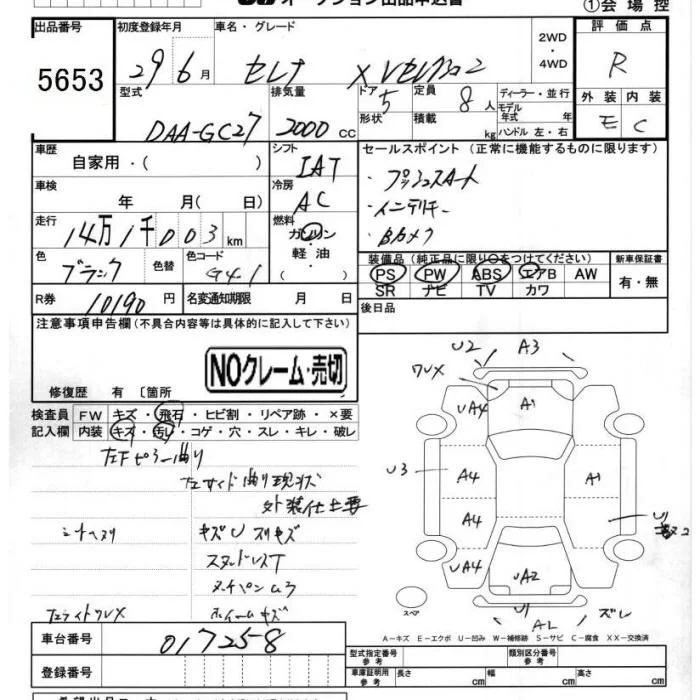 オークション出品申込書 ①会場控
出品番号 初度登録年月 車名・グレード 評価点
5653 29年6月 セレナ XVセレクション2 2WD・4WD R
型式 排気量 ドア 5 定員 8人 ディーラー・並行 外装 内装
DAA-GC27 2000cc 形状 積載 kg モデル年式 年 ハンドル 左・右 E C
車歴 自家用・( ) シフト IAT セールスポイント(正常に機能するものに限ります)
車検 年 月(日) 冷房 AC ・プッシュスタート
・インテリキー
走行 14万1千003km 燃料 ガソリン・軽油・( ) ・Bカメラ
色 ブラック 色替 色コード G41 装備品(純正品に限り○をつけてください) 新車保証書
PS PW ABS エアB AW 有・無
SR ナビ TV カワ
R券 10190円 名変通知期限 月 日 後日品
注意事項申告欄(不具合内容等は具体的に記入して下さい)
NOクレーム・売切
修復歴 有〔箇所
検査員記入欄 FW キズ・飛石・ヒビ割・リペア跡・×要
内装 キズ・汚れ・コゲ・穴・スレ・キレ・破レ
左Fピラー曲り
左サイド曲り現状
外装仕上要
シートヘタリ キズU スリキズ
スタッドレスT
ヌーチペンムラ
左ライトワレX ホイールキズ
U2 A3
ワレX
UA4 A1
U3 A4 A1
A4 U1
UA4 UA2
U1 ズレ
スペア A2
A-キズ E-エクボ U-凹み W-補修跡 S-サビ C-腐食 XX-交換済
車台番号 017258
型式指定番号 参考 類別区分番号 参考
登録番号 車庫証明用 参考 長さ cm 幅 cm 高さ cm